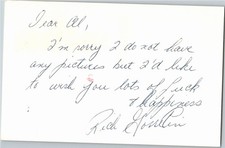 Dear Al,
I'm sorry I do not have
any pictures but I'd like
to wish you lots of luck
+ happiness
Rich